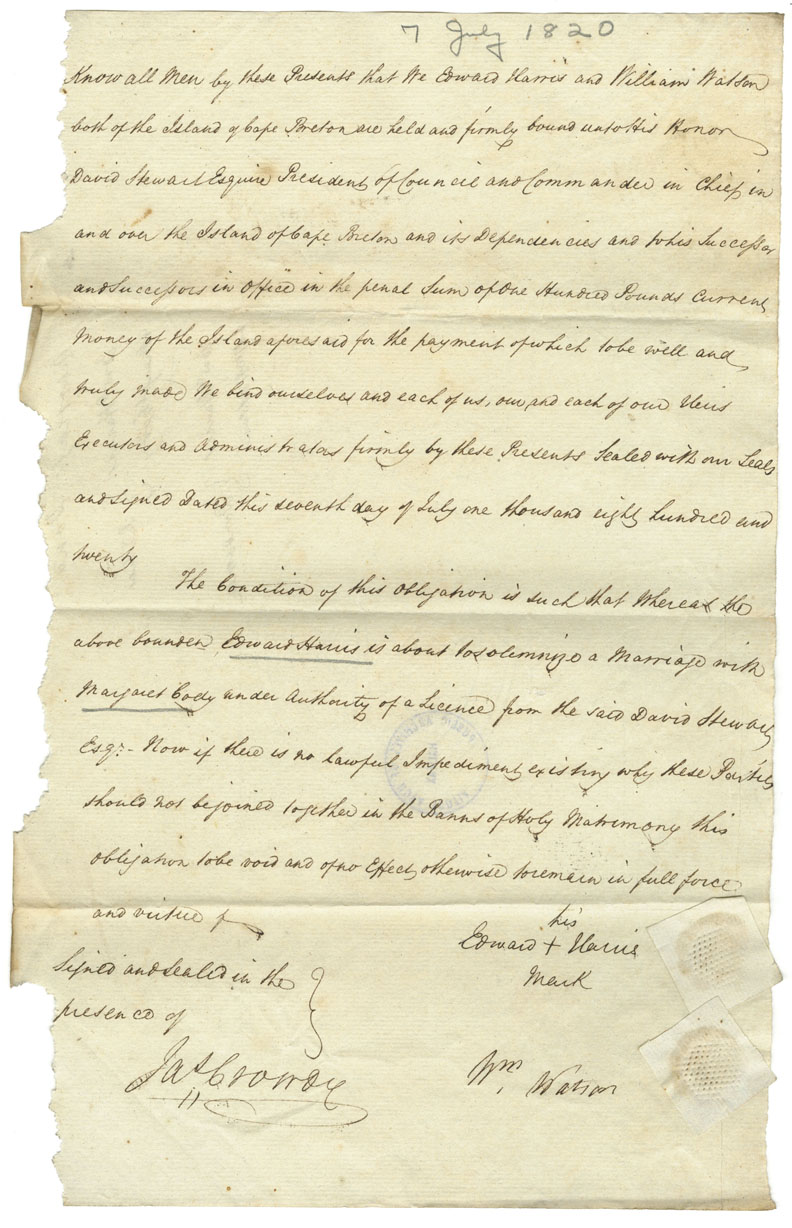 7 July 1820
Know all Men by these Presents that We Edward Harris and William Watson
both of the Island of Cape Breton are held and firmly bound unto His Honor
David Stewart Esquire President of Council and Commander in Chief in
and over the Island of Cape Breton and its Dependencies and to his Successor
and Successors in Office in the penal Sum of One Hundred Pounds Current
Money of the Island aforesaid for the payment of which to be well and
truly made We bind ourselves and each of us, our and each of our Heirs
Executors and Administrators firmly by these Presents Sealed with our Seals
and Signed Dated this seventh day of July one thousand eight hundred and
twenty
The Condition of this Obligation is such that Whereas the
above bounden Edward Harris is about to solemnize a Marriage with
Margaret Cody under Authority of a Licence from the said David Stewart
Esqr. - Now if there is no Lawful Impediment existing why these Parties
should not be joined together in the Banns of Holy Matrimony this
obligation to be void and of no Effect, otherwise to remain in full force
and virtue
his
Edward + Harris
Mark
Signed and Sealed in the
presence of
Jas Crowdy
Wm Watson